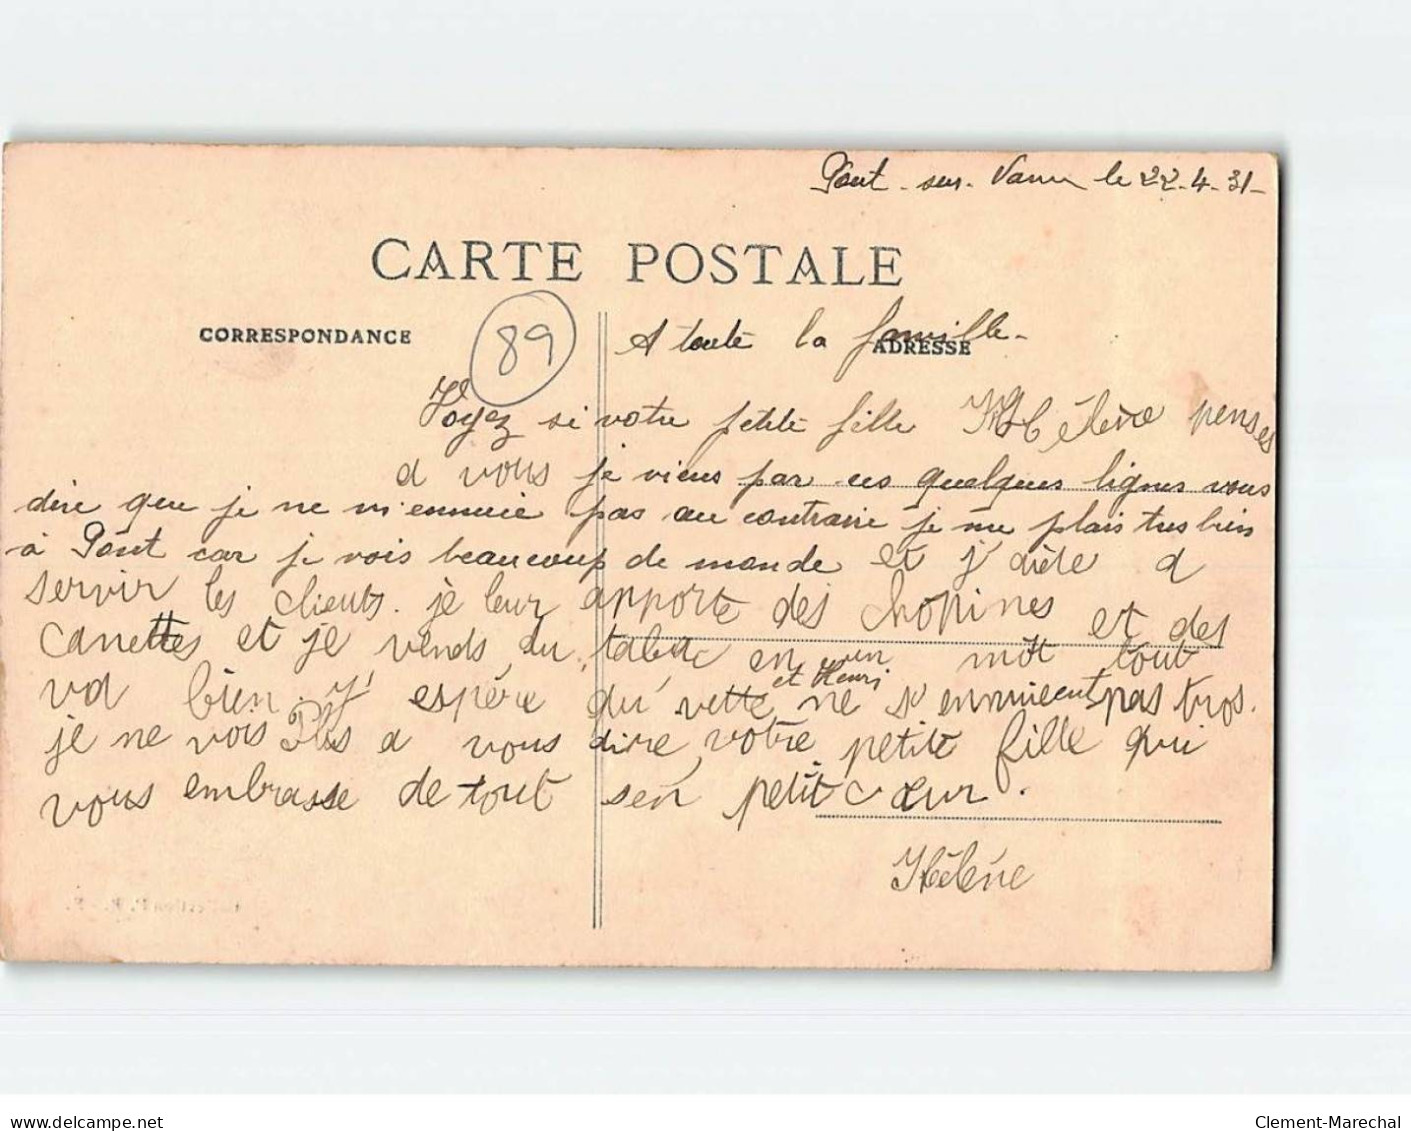 Pont-sur-Vanne le 22-4-31-
CARTE POSTALE
CORRESPONDANCE
89
ADRESSE
A toute la famille-
Voyez si votre petite fille Hélène penses
a vous je viens par ces quelques lignes vous
dire que je ne m'ennuie pas au contraire je me plais tres bien
à Pont car je vois beaucoup de monde et j'aide a
servir les clients. je leur apporte des chopines et des
canettes et je vends du tabac en un mot tout
va bien. J'espére qu'vette et Henri ne s'ennuieent pas tros.
je ne vois Plus a vous dire, votre petite fille qui
vous embrasse de tout sen petit cœur.
Hélène
Collection P. R. - F.
delcampe.net
Clement-Marechal